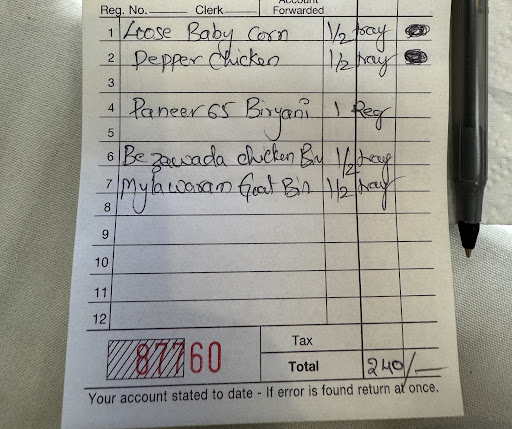 Account
Reg. No. Clerk Forwarded
1 Loose Baby Corn 1/2 tray
2 Pepper Chicken 1/2 tray
3
4 Paneer 65 Biryani 1 Reg
5
6 Bezawada chicken Biry 1/2 tray
7 Mylawaram Goat Biri 1/2 tray
8
9
10
11
12
87760 Tax
Total 240/—
Your account stated to date - If error is found return at once.